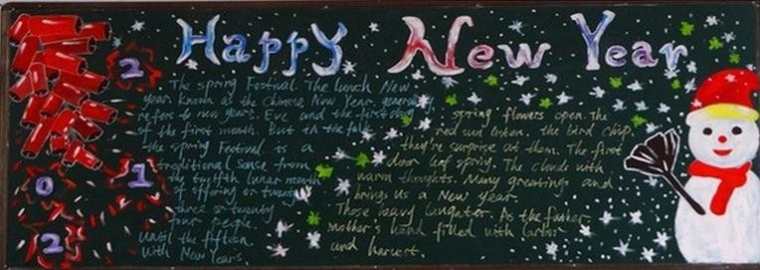 Happy New Year
2
0
1
2
The spring Festival. The lunch New
year known as the Chinese New Year, generally
refers to new years. Eve and the first day
of the first month. But in the folk
the spring Festival is a
traditional sense from
the twelfth lunar month
of offering or twenty
three or twenty
four people.
until the fifteen
With New Years.
spring flowers open. The
red sun listen. the bird chip
they're surprise at them. The first
door leaf spring. The clouds with
warm thoughts. Many greetings and
brings us a New year.
Those heavy laughter. As the father
mother's hand filled with labor
and harvest.